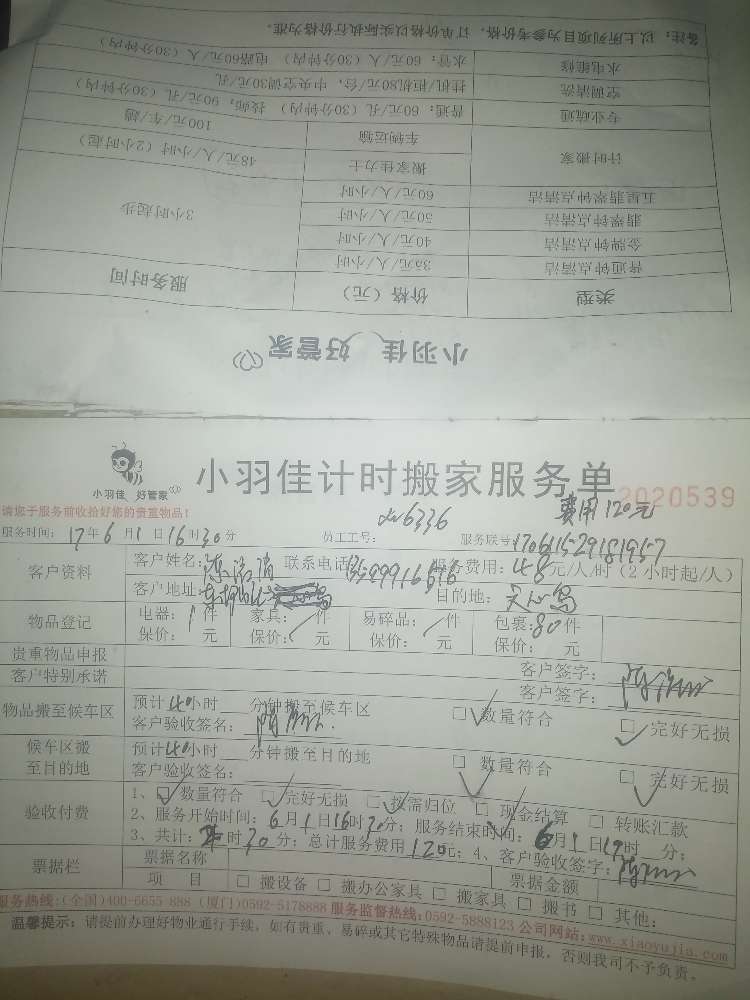 小羽佳 好管家
类型 价格（元） 服务时间
普通钟点清洁 35元/人/小时
金牌钟点清洁 40元/人/小时
翡翠钟点清洁 50元/人/小时
五星翡翠钟点清洁 60元/人/小时
3小时起步
计时搬家 搬家佳力士 48元/人/小时（2小时起）
车辆运输 100元/车/趟
专业疏通 普通：60元/孔（30分钟内） 技师：90元/孔（30分钟内）
空调清洗 挂机/柜机80元/台，中央空调30元/孔
水电维修 水管：60元/人（30分钟内） 电路60元/人（30分钟内）
备注：以上所列项目为参考价格，订单价格以实际执行价格为准。
小羽佳 好管家
小羽佳计时搬家服务单
2020539
费用120元
请您于服务前收拾好您的贵重物品！
服务时间：17年6月1日16时30分 员工工号：6336 服务联号：
客户资料 客户姓名： 联系电话： 服务费用：48元/人/时（2小时起/人）
客户地址： 目的地：
物品登记 电器：1件 家具： 件 易碎品： 件 包裹：80件
保价： 元 保价： 元 保价： 元 保价： 元
贵重物品申报 客户签字：
客户特别承诺 客户签字：
物品搬至候车区 预计 小时 分钟搬至候车区 □数量符合 □完好无损
客户验收签名：
候车区搬至目的地 预计 小时 分钟搬至目的地 □数量符合 □完好无损
客户验收签名：
验收付费 1、□数量符合 □完好无损 □按需归位 □现金结算 □转账汇款
2、服务开始时间：6月1日16时30分；服务结束时间：6月1日19时 分；
3、共计： 时30分；总计服务费用120元；4、客户验收签字：
票据栏 票据名称 票据金额
项 目 □搬设备 □搬办公家具 □搬家具 □搬书 □其他：
服务热线：(全国)400-6655 888 (厦门)0592-5178888 服务监督热线：0592-5888123 公司网站：www.xiaoyujia.com
温馨提示：请提前办理好物业通行手续，如有贵重、易碎或其它特殊物品请提前申报，否则我司不予负责。